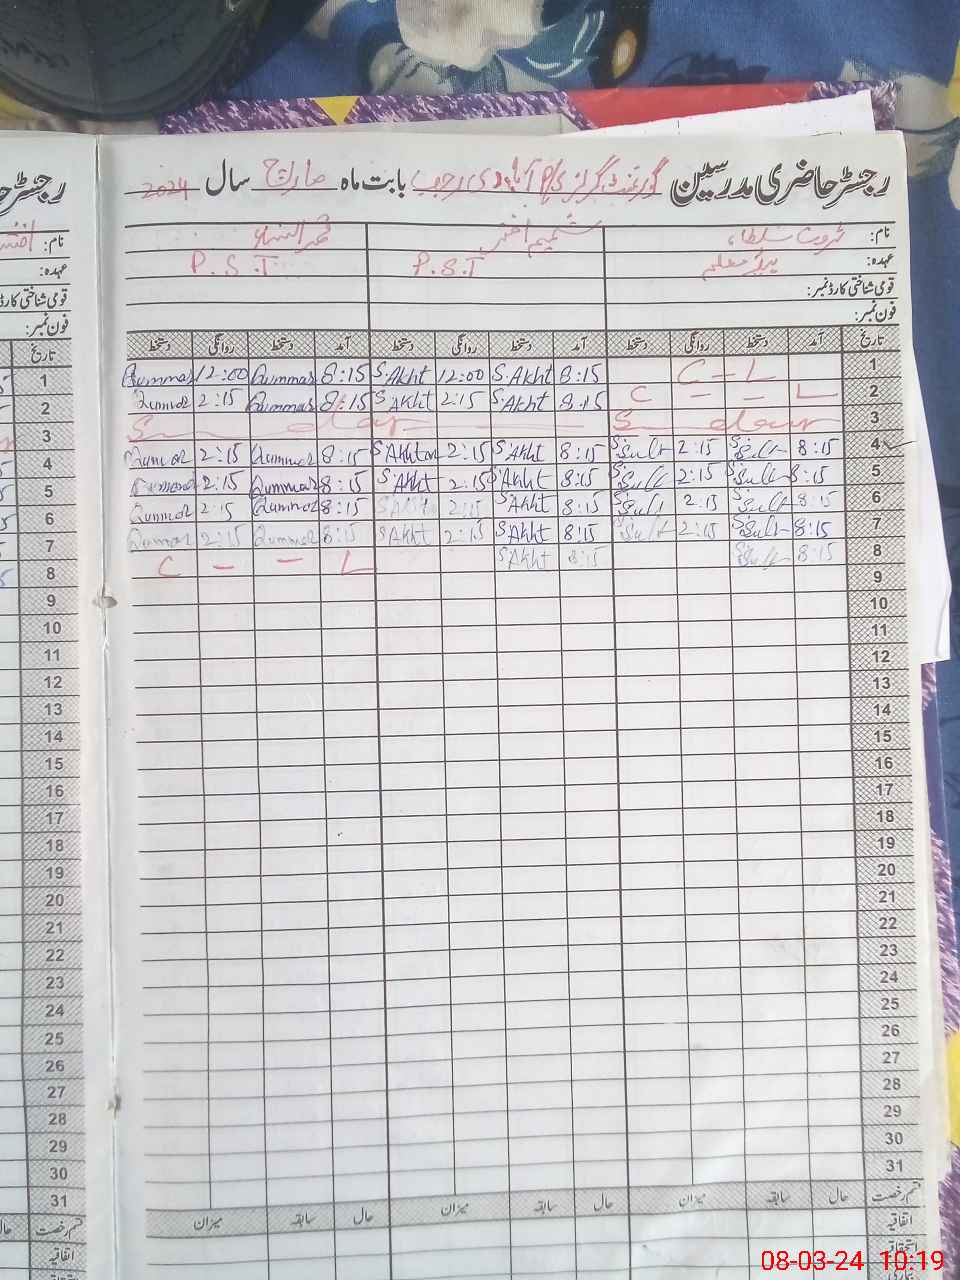 رجسٹر حاضری مدرسین گورنمنٹ گرلز بابت ماہ مارچ سال 2024
نام: ثروت سلطانہ شمیم اختر قمر النساء
عہدہ: ہیڈ معلمہ P.S.T P.S.T
قومی شناختی کارڈ نمبر:
فون نمبر:
تاریخ آمد دستخط روانگی دستخط آمد دستخط روانگی دستخط آمد دستخط روانگی دستخط
1 C - L 8:15 S.Akht 12:00 S.Akht 8:15 Qummar 12:00 Qummar
2 C - - L 8:15 S.Akht 2:15 S.Akht 8:15 Qummar 2:15 Qummar
3 S day S day
4 8:15 S.Sult 2:15 S.Sult 8:15 S.Akht 2:15 S.Akhtar 8:15 Qummar 2:15 Qummar
5 8:15 S.Sult 2:15 S.Sult 8:15 S.Akht 2:15 S.Akht 8:15 Qummar 2:15 Qummar
6 8:15 S.Sult 2:15 S.Sult 8:15 S.Akht 2:15 S.Akht 8:15 Qummar 2:15 Qummar
7 8:15 S.Sult 2:15 S.Sult 8:15 S.Akht 2:15 S.Akht 8:15 Qummar 2:15 Qummar
8 8:15 S.Sult 8:15 S.Akht C - - L
9
10
11
12
13
14
15
16
17
18
19
20
21
22
23
24
25
26
27
28
29
30
31
قسم رخصت حال سابقہ میزان حال سابقہ میزان حال سابقہ میزان
اتفاقیہ
استحقاقیہ
رجسٹر
نام:
عہدہ:
قومی شناختی کارڈ
فون نمبر:
تاریخ
1
2
3
4
5
6
7
8
9
10
11
12
13
14
15
16
17
18
19
20
21
22
23
24
25
26
27
28
29
30
31
قسم رخصت حال
اتفاقیہ
08-03-24 10:19